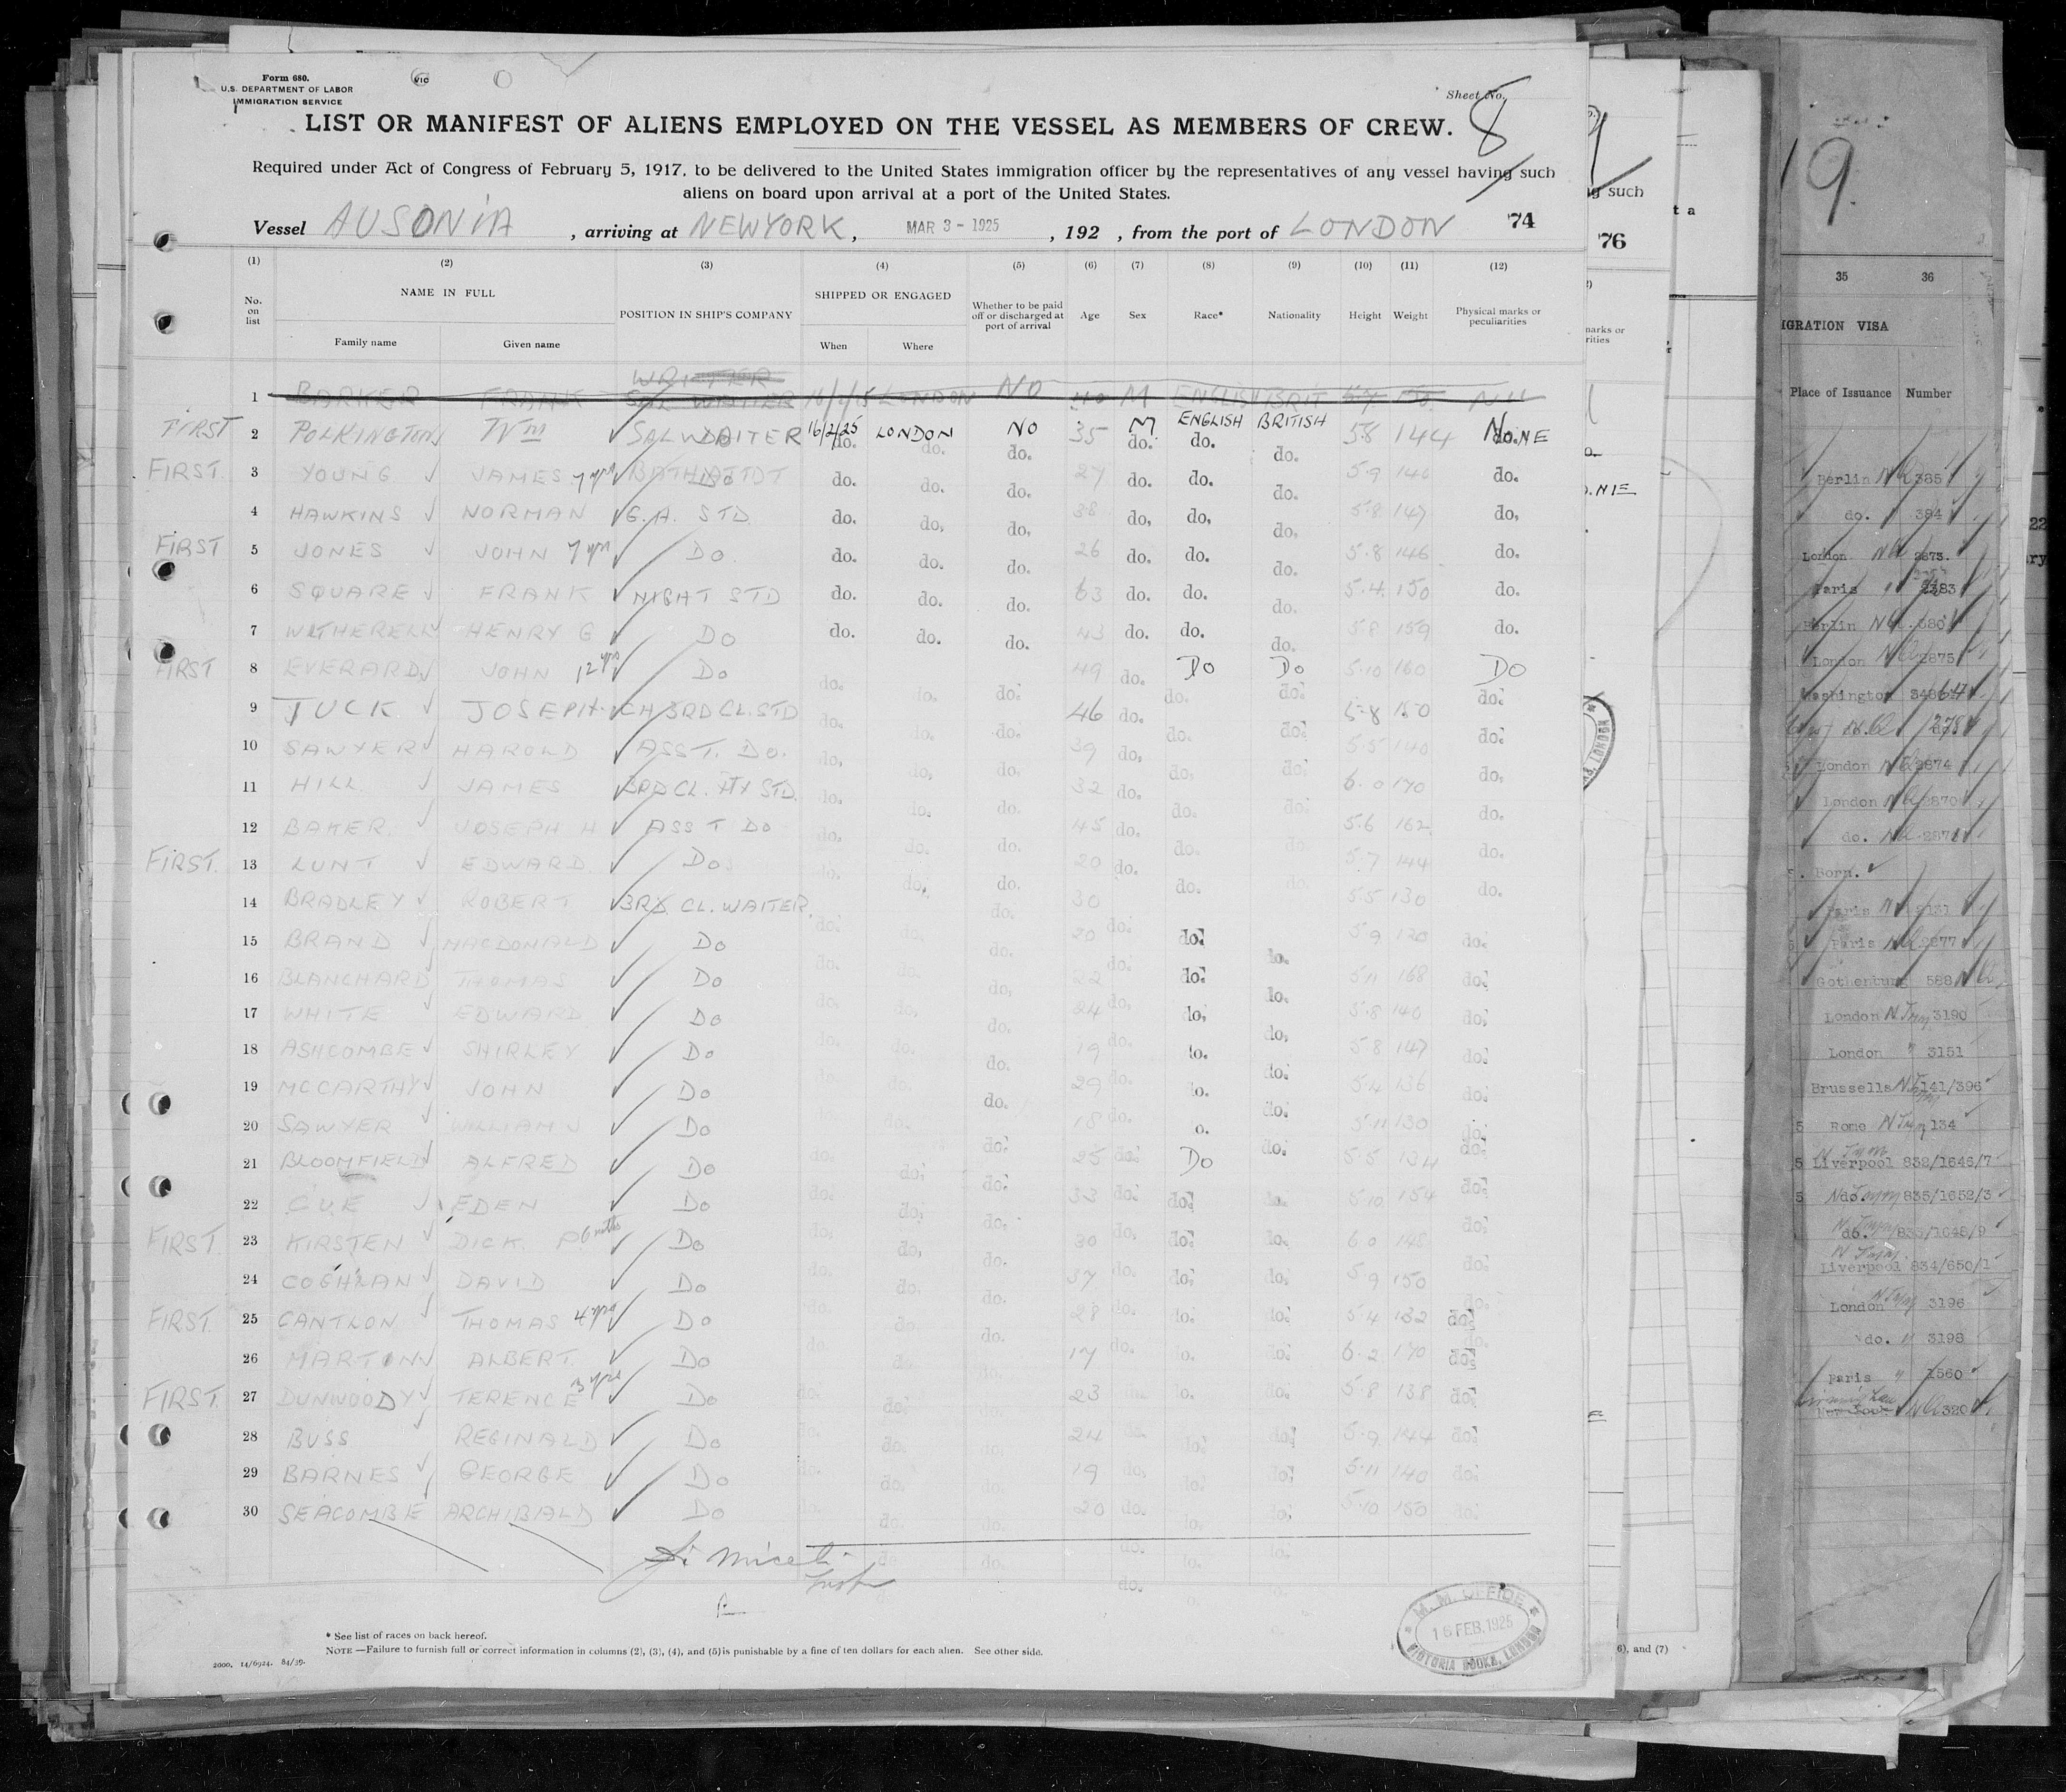 Form 680.
U.S. DEPARTMENT OF LABOR
IMMIGRATION SERVICE
VIC
Sheet No. 8
LIST OR MANIFEST OF ALIENS EMPLOYED ON THE VESSEL AS MEMBERS OF CREW.
Required under Act of Congress of February 5, 1917, to be delivered to the United States immigration officer by the representatives of any vessel having such
aliens on board upon arrival at a port of the United States.
Vessel AUSONIA, arriving at NEWYORK, MAR 3 - 1925, 192 , from the port of LONDON 74
(1) (2) (3) (4) (5) (6) (7) (8) (9) (10) (11) (12)
No. on list NAME IN FULL POSITION IN SHIP'S COMPANY SHIPPED OR ENGAGED Whether to be paid off or discharged at port of arrival Age Sex Race* Nationality Height Weight Physical marks or peculiarities
Family name Given name When Where
WRITER
1 BARKER FRANK SAL WAITER LONDON NO 40 M ENGLISH BRIT
FIRST 2 POLKINGTON Wm SAL WAITER 16/2/25 LONDON NO 35 M ENGLISH BRITISH 5.8 144 NONE
FIRST. 3 YOUNG JAMES 7 yrs BATH ATTDT do. do. do. 27 do. do. do. 5.9 146 do.
4 HAWKINS NORMAN G.A. STD. do. do. do. 38 do. do. do. 5.8 147 do.
FIRST 5 JONES JOHN 7 yrs DO. do. do. do. 26 do. do. do. 5.8 146 do.
6 SQUARE FRANK NIGHT STD do. do. do. 63 do. do. do. 5.4 150 do.
7 WITHERELL HENRY G DO do. do. do. 43 do. do. do. 5.8 159 do.
FIRST 8 EVERARD JOHN 12 yrs DO do. do. do. 49 do. DO DO 5.10 160 DO
9 TUCK JOSEPH. CH 3RD CL. STD do. do. do. 46 do. do. do. 5-8 150 do.
10 SAWYER HAROLD ASST. DO. do. do. do. 39 do. do. do. 5.5 140 do.
11 HILL JAMES 3RD CL. STD. do. do. do. 32 do. do. do. 6.0 170 do.
12 BAKER JOSEPH H ASST DO do. do. do. 45 do. do. do. 5.6 162 do.
FIRST. 13 LUNT EDWARD DO do. do. do. 20 do. do. do. 5.7 144 do.
14 BRADLEY ROBERT 3RD. CL. WAITER. do. do. do. 30 do. do. 5.5 130 do.
15 BRAND MACDONALD DO do. do. do. 20 do. do. do. 5.9 120 do.
16 BLANCHARD THOMAS DO do. do. do. 22 do. do. do. 5.11 168 do.
17 WHITE EDWARD DO do. do. do. 24 do. do. do. 5.8 140 do.
18 ASHCOMBE SHIRLEY DO do. do. do. 19 do. do. do. 5.8 147 do.
19 MCCARTHY JOHN DO do. do. do. 29 do. do. do. 5.4 136 do.
20 SAWYER WILLIAM J DO do. do. 18 do. o. do. 5.11 130 do.
21 BLOOMFIELD ALFRED DO do. do. do. 25 do. DO do. 5.5 134 do.
22 CUE EDEN DO do. do. do. 33 do. do. do. 5.10 154 do.
FIRST. 23 KIRSTEN DICK. 6 mths DO do. do. do. 30 do. do. do. 6 0 148 do.
24 COGHLAN DAVID DO do. do. do. 37 do. do. do. 5.9 150 do.
FIRST. 25 CANTLON THOMAS 4 yrs DO do. do. do. 28 do. do. do. 5.4 132 do.
26 MARTIN ALBERT. DO do. do. do. 17 do. do. do. 6.2 170 do.
FIRST. 27 DUNWOODY TERENCE 3 yrs DO do. do. 23 do. do. 5.8 138 do.
28 BUSS REGINALD DO do. do. do. 24 do. do. do. 5.9 144 do.
29 BARNES GEORGE DO do. do. do. 19 do. do. do. 5.11 140 do.
30 SEACOMBE ARCHIBALD DO do. do. do. 20 do. do. do. 5.10 150 do.
M. M. OFFICE
16 FEB. 1925
VICTORIA DOCKS, LONDON
* See list of races on back hereof.
NOTE —Failure to furnish full or correct information in columns (2), (3), (4), and (5) is punishable by a fine of ten dollars for each alien. See other side.
2000. 14/6924. 84/39.
9
g such
76
t a
arks or
rities
6), and (7)
19.
35 36
IGRATION VISA
Place of Issuance Number
Berlin 385
do. 384
London 2873.
Paris 2383
Berlin 380
London 2875
Washington
London 2874
London 2870
do. 2871
Born.
Paris
Paris 2877
Gothenburg 588
London 3190
London " 3151
Brussells 141/396
Rome 134
Liverpool 832/1646/7
do. 835/1652/3
do. 835/1648/9
Liverpool 834/650/1
London 3196
do. " 3198
Paris " 1560
320